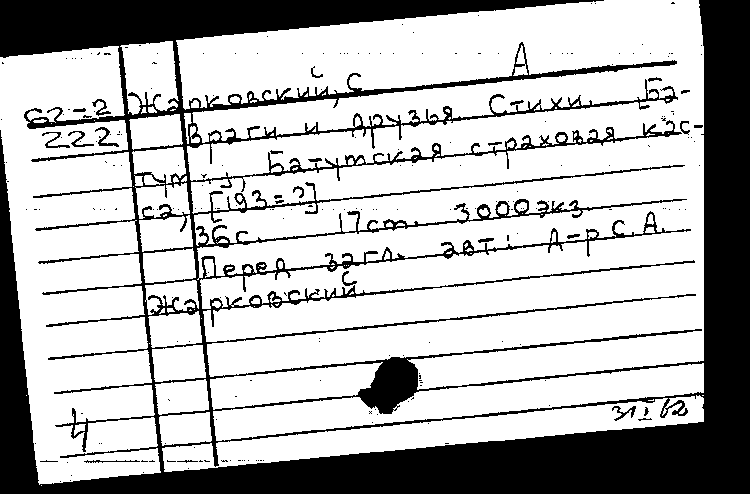 А
62-2 Жарковский, С
222 Враги и друзья Стихи. Ба-
тум, Батумская страховая кас-
са, [193=?]
36с. 17см. 3000экз.
Перед загл. авт.: Д-р С.А.
Жарковский.
4
31 I 62